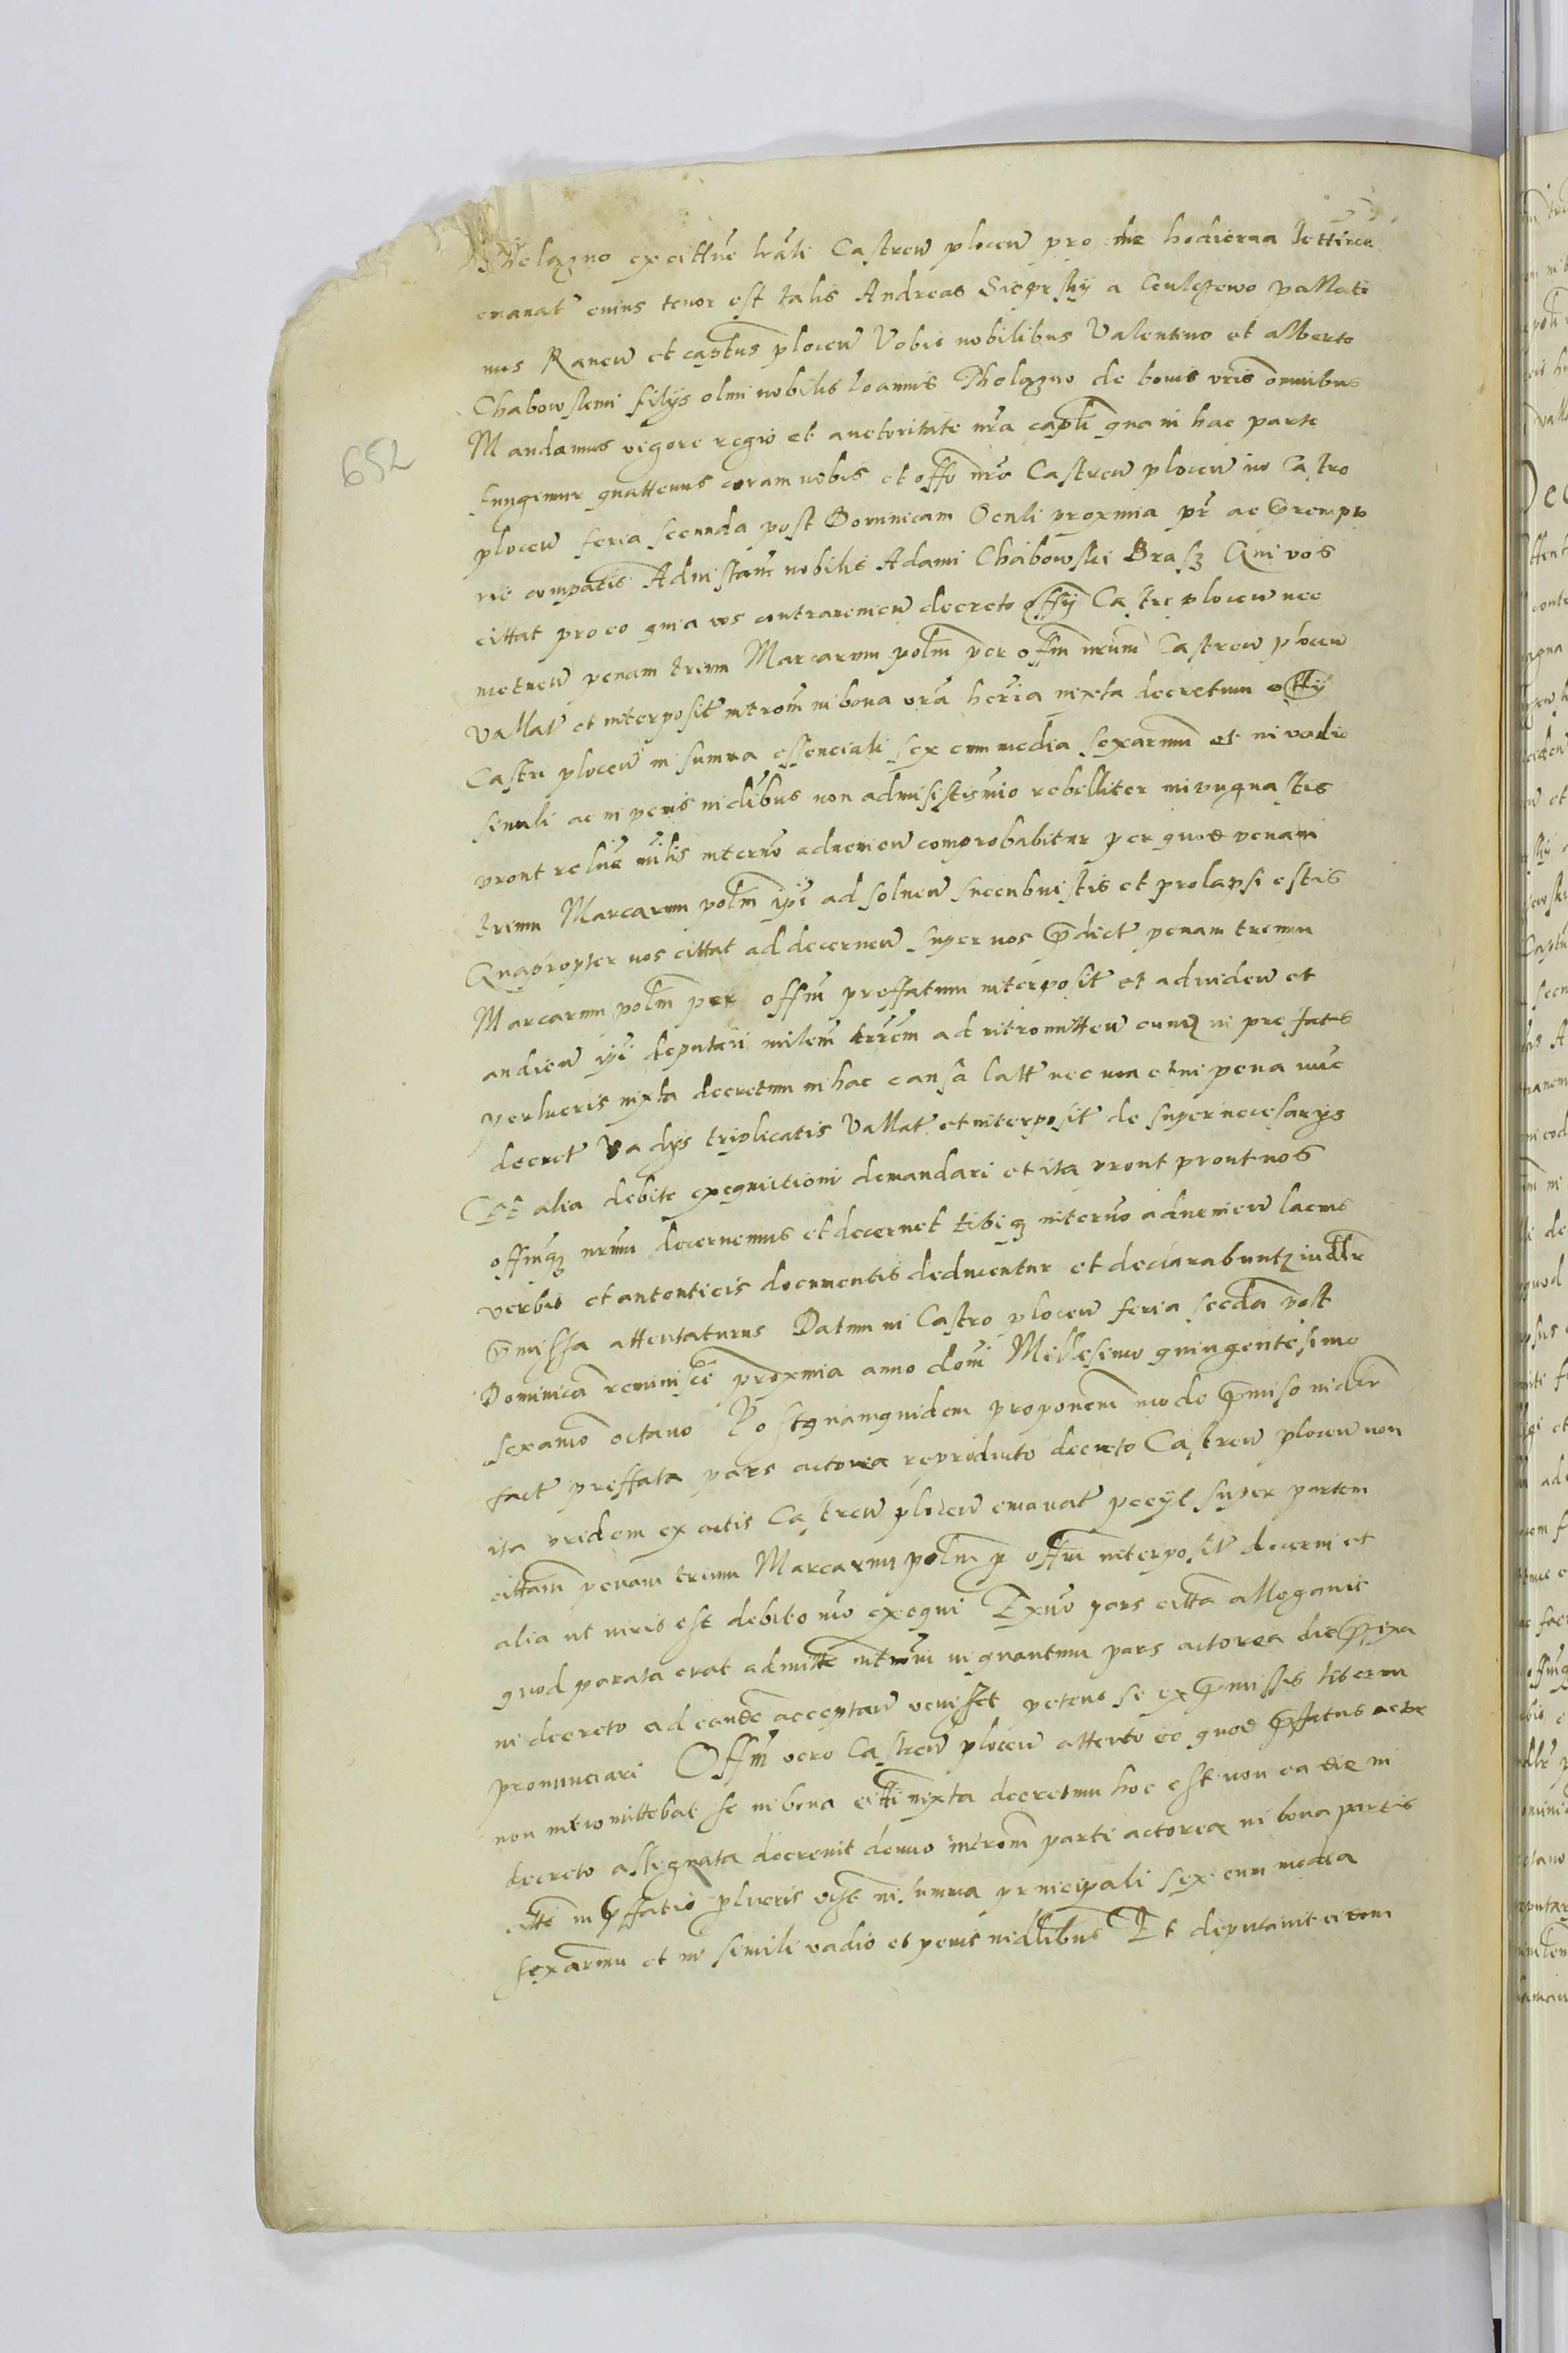 Thelazno ex cittne lrali Castren plocen pro die hodierna
emanat cuius tenor est talis Andreas Sieprskÿ a Culczewo pallati
nus Rauen et captus plocen Vobis nobilibus Valentino et Alberto
Chabowskemi filÿs olmi nobilis Ioannis Thelazno de bonis vris omnibus
652
Mandamus vigore regio et auctoritate nra capli qua in hac parte
fungimur quattenus coram nobis et offo nro Castren plocen in Castro
plocen feria secunda post Dominicam Oculi proxmia pr ac perempto
rie compatis Ad instam nobilis Adami Chabowski Brasz Qui vos
cittat pro eo quia vos contravenien decreto offÿ Castr plocen nec
metuen penam trium Marcarum polm per offm nrum Castren plocen
Vallat et interposit introm in bona vra heria iuxta decretum offÿ
Castri plocen in summa essenciali sex cum media sexarum et in vadio
simili ac in penis iudibus non admisistis imo rebelliter inpugnastis
pront relne milis interno advenien comprobabitur per quod penam
trium Marcarum polm ipi ad solven sucenbuistis et prolapsi estis
Quapropter vos cittat ad decernen super vos pdict penam trium
Marcarum polm per offm preffatum interposit et ad viden et
audien ipi deputari milem trrem ad intromitten eumq in prefatis
perlucris iuxta decretum in hac causa latt nec non et in pena nunc
decret Vadÿs triplicatis Vallat et interposit de super necesarÿs
Et alia debite exequutioni demandari et ita pront pront nos
offmq nrum decernemus et decernet tibiq interno advenien lacius
verbis et antonticis documentis deducentur et declarabuntz iudlr
pmissa attentaturus Datum in Castro plocen feria secda post
Dominica reminisce proxmia anno domi Millesimo quingentesimo
sexamo octavo Postquamquidem proponem modo pmiso iudir
fact preffata pars actorea reproducto decreto Castren plocen non
ita pridem ex actis Castren plocen emanat pecÿt super partem
cittam penam trium Marcarum polm p offm interposit decerni et
alia ut iuris est debito mo exequi Exno pars citta allegavit
quod parata erat admitte introm in quantum pars actorea die pfixa
in decreto ad eande acceptan venisset petens se ex pmissis liberum
pronunciari Offm vero Castren plocen attento eo quod pffatus actor
non intromittebat se in bona citti iuxta decretum hoc est non ea die in
decreto assignata decrevit denuo introm parti actorea in bona partis
citte in pffatis plucris vist in summa principali sex cum media
sexarum et in simili vadio et penis iudlibus Et deputavit eidem